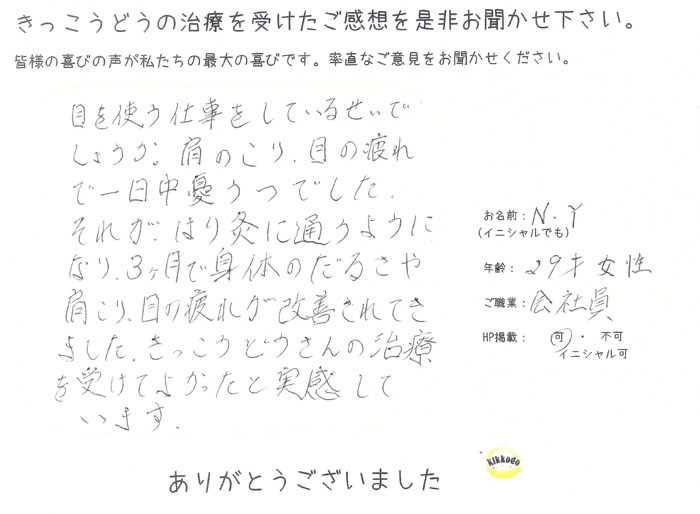 きっこうどうの治療を受けたご感想を是非お聞かせ下さい。
皆様の喜びの声が私たちの最大の喜びです。率直なご意見をお聞かせください。
目を使う仕事をしているせいで
しょうか。肩のこり、目の疲れ
で一日中憂うつでした。
それが、はり灸に通うように
なり、3ヶ月で身体のだるさや
肩こり、目の疲れが改善されてき
ました。きっこうどうさんの治療
を受けてよかったと実感して
います。
お名前：N.Y
(イニシャルでも)
年齢：29才 女性
ご職業：会社員
HP掲載：可・不可
イニシャル可
kikkodo
ありがとうございました